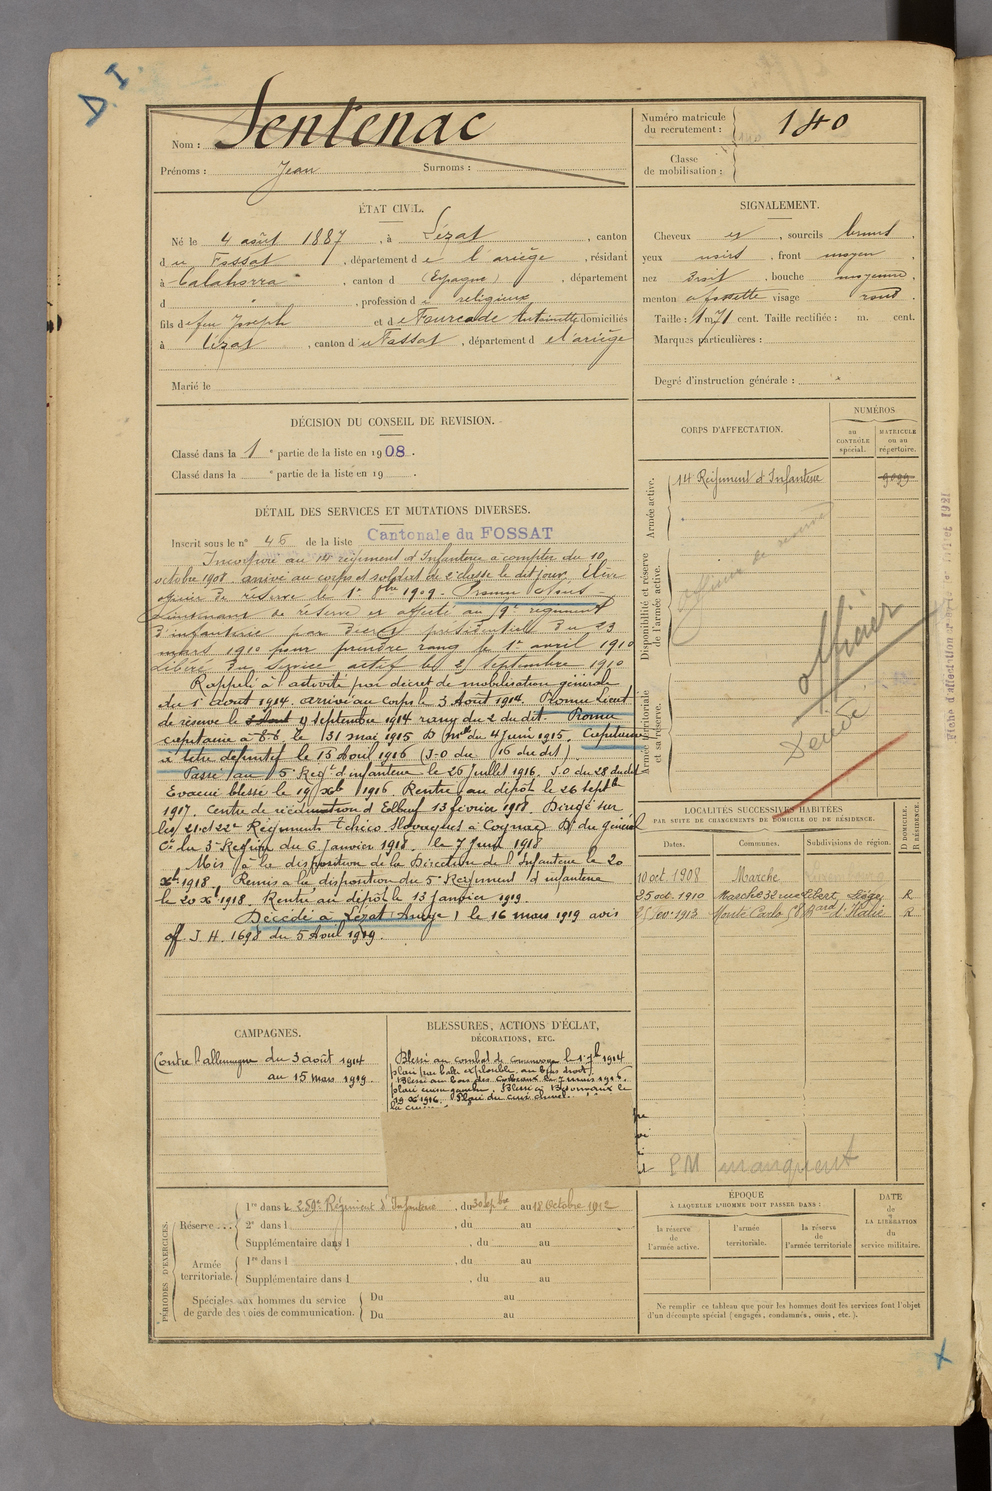 D. I
Nom : Sentenac
Prénoms : Jean Surnoms :
ÉTAT CIVIL.
Né le 4 août 1887, à Lézat, canton
du Fossat, département de l'ariège, résidant
à Calahorra, canton d (Espagne), département
d , profession de religieux
fils de feu Joseph et de Fourcade Antoinette domiciliés
à Lézat, canton du Fossat, département de l'ariège
Marié le
DÉCISION DU CONSEIL DE REVISION.
Classé dans la 1e partie de la liste en 1908.
Classé dans la e partie de la liste en 19 .
DÉTAIL DES SERVICES ET MUTATIONS DIVERSES.
Inscrit sous le n° 46 de la liste Cantonale du FOSSAT
Incorporé au 14e régiment d'Infanterie à compter du 10
octobre 1908. arrivé au corps et soldat de 2e classe le dit jour, Elève
officier de réserve le 1er 8bre 1909. Promu sous-
lieutenant de réserve et affecté au 9e régiment
d'infanterie par décret présidentiel du 29
mars 1910 pour prendre rang le 1er avril 1910
Libéré du service actif le 2 septembre 1910
Rappelé à l'activité par décret de mobilisation générale
du 1er aout 1914. arrivé au corps le 3 Août 1914. Promu Lieut.
de réserve le 3 Aout 4 septembre 1914 rang du 2 du dit. Promu
capitaine à T.T. le 31 mai 1915 D Mlle du 4 Juin 1915. Capitaine
à titre définitif le 15 Avril 1916 (J.O du 16 du dit)
Passé au 5e Regt d'infanterie le 26 Juillet 1916. J.O du 28 du dit
Evacué blessé le 19 Xbre 1916. Rentré au dépôt le 26 septbre
1917. Centre de rééducation d'Elbeuf 13 février 1918. Dirigé sur
les 21 et 22e Régiments Tchéco Slovaques à Cognac Don du général
Ct la 3e Région du 6 Janvier 1918. le 7 Juin 1918
Mis à la disposition de la Direction de l'Infanterie le 20
Xbre 1918. Remis à la disposition du 5e Régiment d'infanterie
le 20 Xbre 1918. Rentré au dépôt le 13 Janvier 1919.
Décédé à Lézat (Ariège) le 16 mars 1919 avis
off. J. H. 1698 du 5 Avril 1919.
CAMPAGNES.
Contre l'allemagne du 3 août 1914
au 15 mars 1919.
BLESSURES, ACTIONS D'ÉCLAT,
DÉCORATIONS, ETC.
Blessé au combat de le 1er 7bre 1914
plaie par balle explosible au bras droit.
Blessé au bois des Corbeaux le 7 mars 1916.
plaie jambe. Blessé à Bezonvaux le
19 Xbre 1916. Plaie du
PÉRIODES D'EXERCICES.
Réserve ... 1re dans le 259e Régiment d'Infanterie, du 30 Sepbre au 18 Octobre 1912
2e dans l , du au
Supplémentaire dans l , du au
Armée territoriale. 1re dans l , du au
Supplémentaire dans l , du au
Spéciales aux hommes du service Du au
de garde des voies de communication. Du au
Numéro matricule du recrutement : 140
Classe de mobilisation :
SIGNALEMENT.
Cheveux et , sourcils bruns,
yeux noirs, front moyen,
nez droit, bouche moyenne,
menton à fossette visage rond.
Taille : 1m71 cent. Taille rectifiée : m. cent.
Marques particulières :
Degré d'instruction générale :
CORPS D'AFFECTATION.
NUMÉROS
au CONTRÔLE spécial.
MATRICULE ou au répertoire.
Armée active.
14 Régiment d'Infanterie 9029
Disponibilité et réserve de l'armée active.
Officier de réserve
officier
Armée territoriale et sa réserve.
Fiche d'affectation
LOCALITÉS SUCCESSIVES HABITÉES
PAR SUITE DE CHANGEMENTS DE DOMICILE OU DE RÉSIDENCE.
Dates. Communes. Subdivisions de région. D DOMICILE. R RÉSIDENCE.
10 oct. 1908 Marche
25 oct. 1910 Marche 32 rue Libert, Liège R
1913 Monte Carlo Bard d'Italie R
PM manquent
ÉPOQUE
À LAQUELLE L'HOMME DOIT PASSER DANS :
la réserve de l'armée active.
l'armée territoriale.
la réserve de l'armée territoriale
DATE de LA LIBÉRATION du service militaire.
Ne remplir ce tableau que pour les hommes dont les services font l'objet
d'un décompte spécial (engagés, condamnés, omis, etc.).